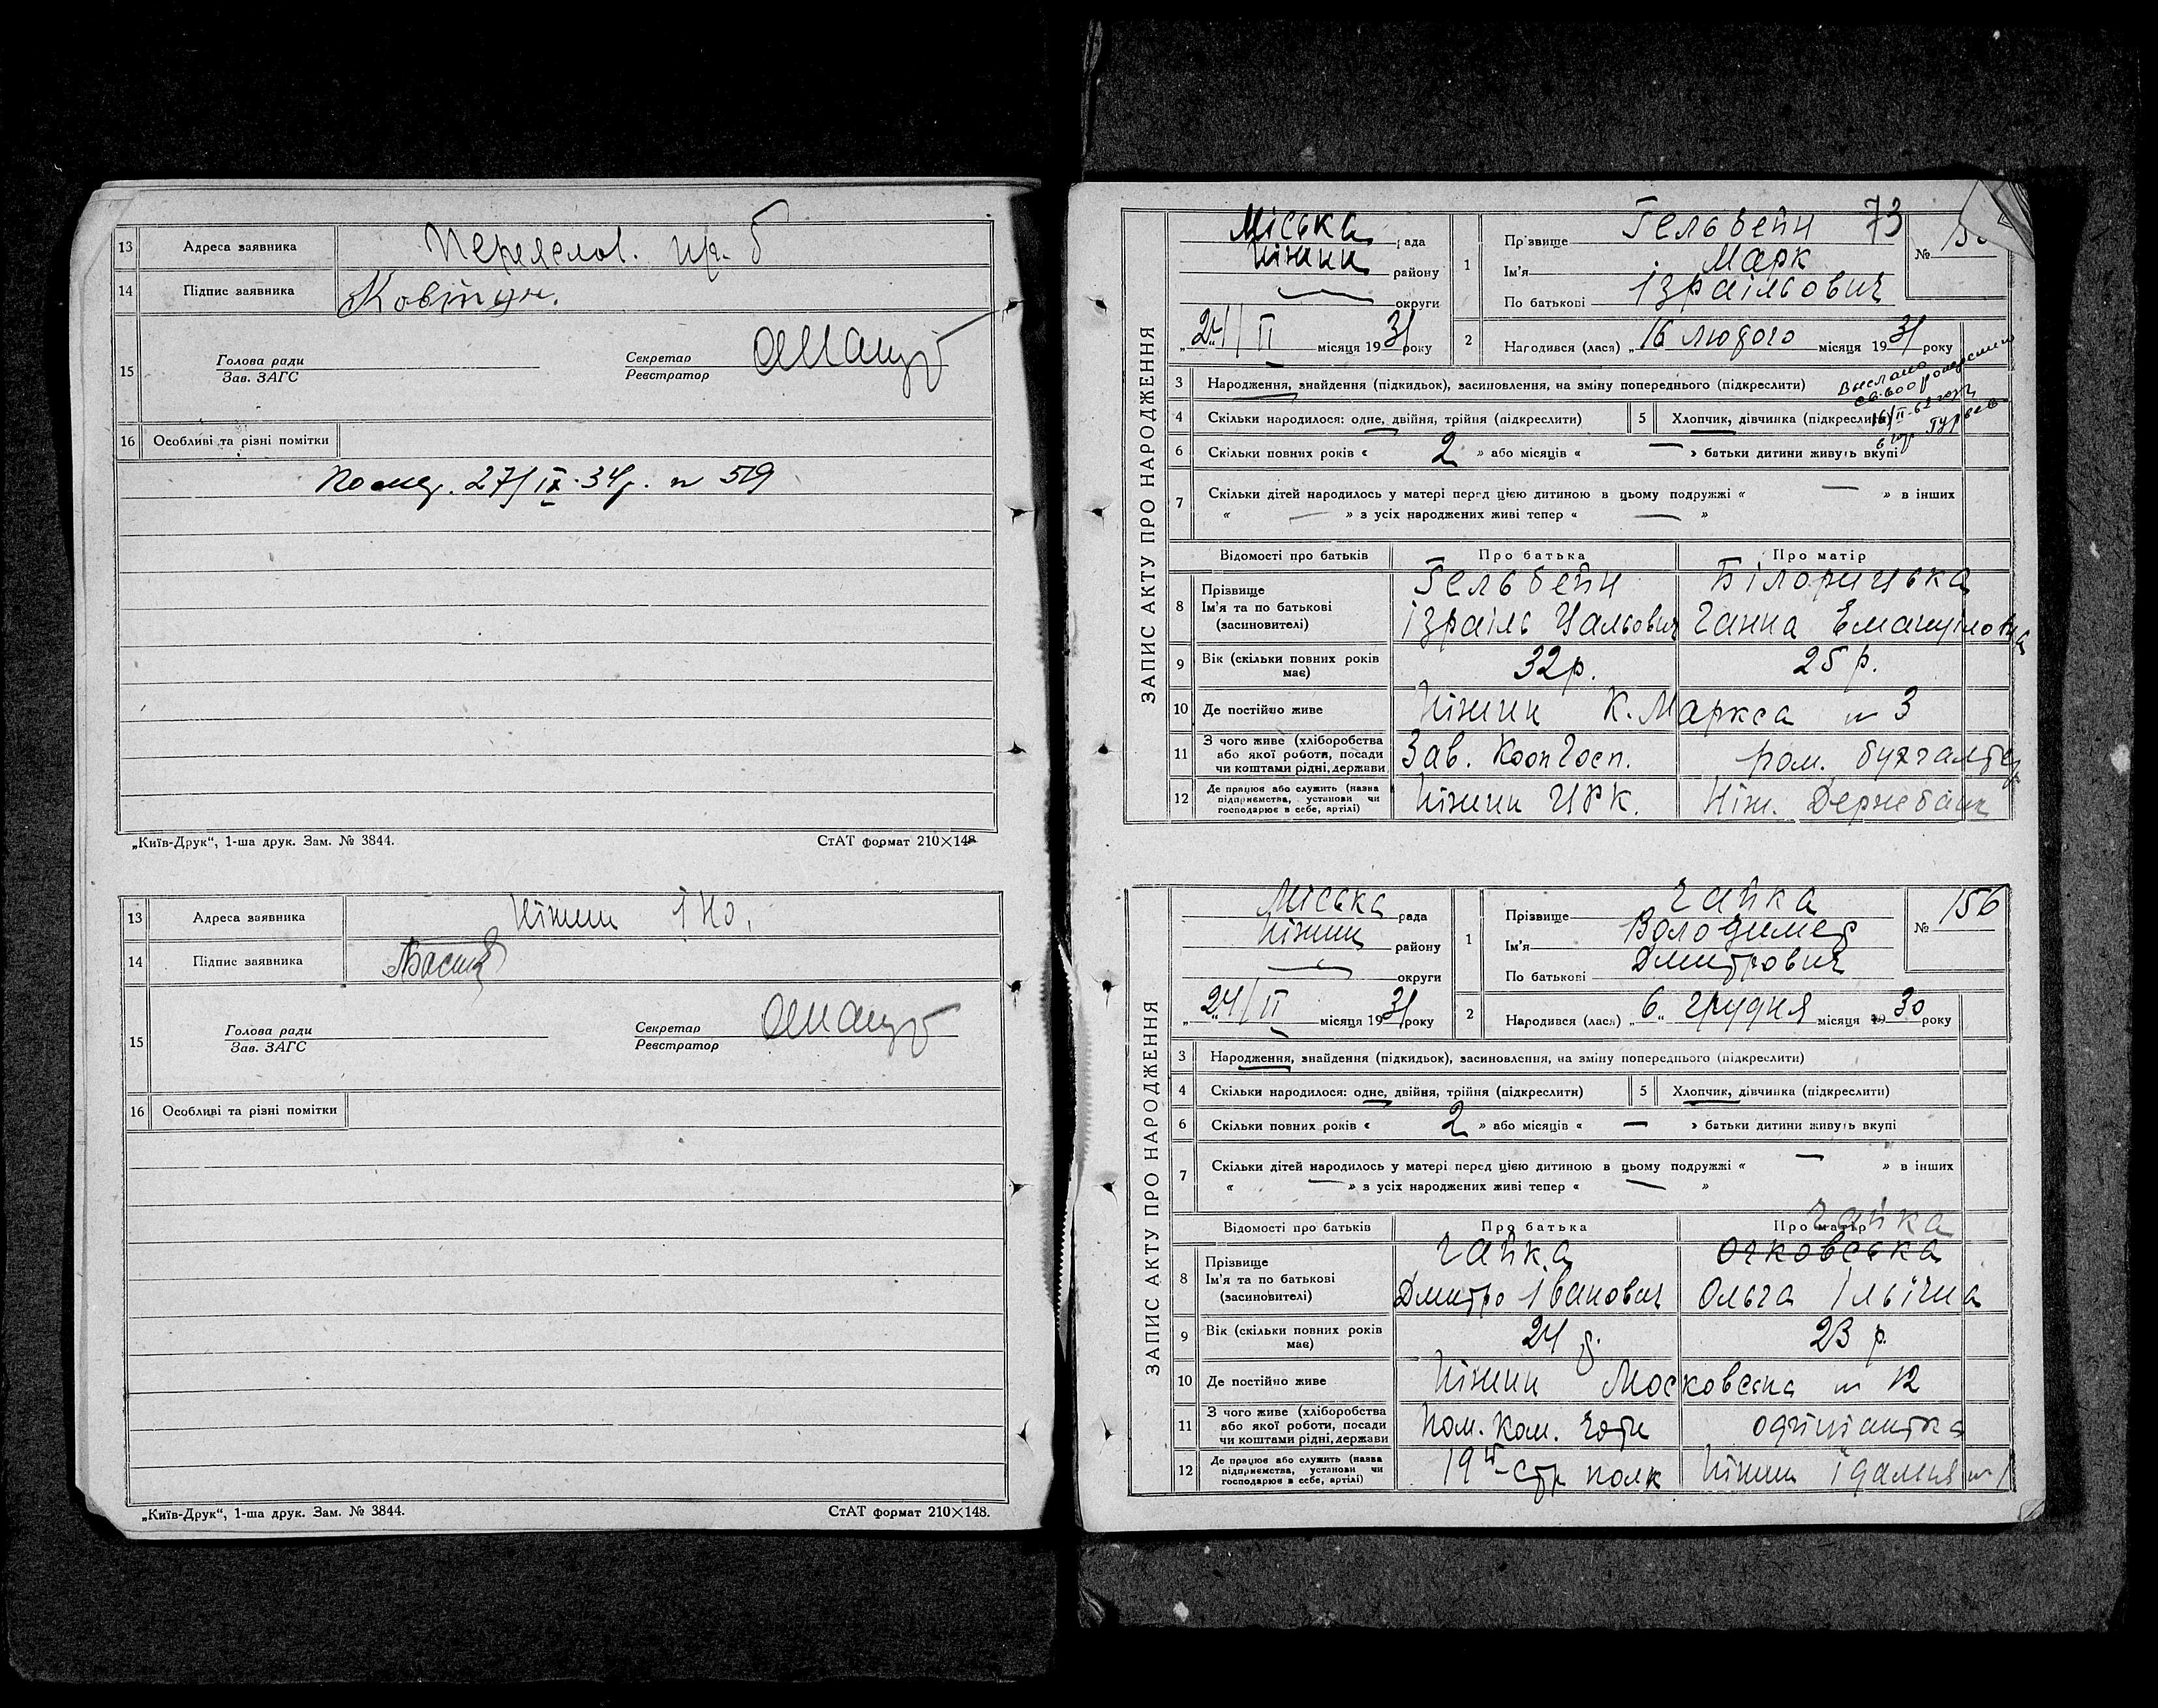 13 Адреса заявника Переяслов. пр. 6
14 Підпис заявника
15 Голова ради Секретар
Зав. ЗАГС Реєстратор
16 Особливі та різні помітки
27/IX-34р. № 519
„Київ-Друк“, 1-ша друк. Зам. № 3844. СтАТ формат 210×148
13 Адреса заявника Ніжин ІНО.
14 Підпис заявника
15 Голова ради Секретар
Зав. ЗАГС Реєстратор
16 Особливі та різні помітки
„Київ-Друк“, 1-ша друк. Зам. № 3844. СтАТ формат 210×148.
73
ЗАПИС АКТУ ПРО НАРОДЖЕННЯ
Міська рада
Ніжин району
округи
„24/II місяця 1931 року
1 Прізвище Гельбейн №
Ім'я Марк
По батькові Ізраїльович
2 Народився (лася) „16 лютого місяця 1931 року
3 Народження, знайдення (підкидьок), засиновлення, на зміну попереднього (підкреслити)
Выслано
св-во
4 Скільки народилося: одне, двійня, трійня (підкреслити) 5 Хлопчик, дівчинка (підкреслити)
6 Скільки повних років « 2 » або місяців « — » батьки дитини живуть вкупі
7 Скільки дітей народилось у матері перед цією дитиною в цьому подружжі « — » в інших
« — » з усіх народжених живі тепер « — »
Відомості про батьків Про батька Про матір
8 Прізвище Гельбейн Білорицька
Ім'я та по батькові
(засиновителі) Ізраїль Цальович Ганна Емануїловна
9 Вік (скільки повних років має) 32р. 25 р.
10 Де постійно живе Ніжин К. Маркса № 3
11 З чого живе (хліборобства
або якої роботи, посади
чи коштами рідні, держави Зав. Коопгосп. пом. бухгалтер
12 Де працює або служить (назва
підприємства, установи чи
господарює в себе, артілі) Ніжин ЦРК. Ніж. Держбанк
ЗАПИС АКТУ ПРО НАРОДЖЕННЯ
Міська рада
Ніжин району
округи
„24/II місяця 1931 року
1 Прізвище Чайка № 156
Ім'я Володимер
По батькові Дмитрович
2 Народився (лася) „6“ грудня місяця 1930 року
3 Народження, знайдення (підкидьок), засиновлення, на зміну попереднього (підкреслити)
4 Скільки народилося: одне, двійня, трійня (підкреслити) 5 Хлопчик, дівчинка (підкреслити)
6 Скільки повних років « 2 » або місяців « — » батьки дитини живуть вкупі
7 Скільки дітей народилось у матері перед цією дитиною в цьому подружжі « — » в інших
« — » з усіх народжених живі тепер « — »
Відомості про батьків Про батька Про матір
Чайка
8 Прізвище Чайка Очковська
Ім'я та по батькові
(засиновителі) Дмитро Іванович Ольга Ільїчна
9 Вік (скільки повних років має) 24 р. 23 р.
10 Де постійно живе Ніжин Московська № 12
11 З чого живе (хліборобства
або якої роботи, посади
чи коштами рідні, держави Пом. Ком. роти офіціантка
12 Де працює або служить (назва
підприємства, установи чи
господарює в себе, артілі) 19й стр полк Ніжин їдальня № 1